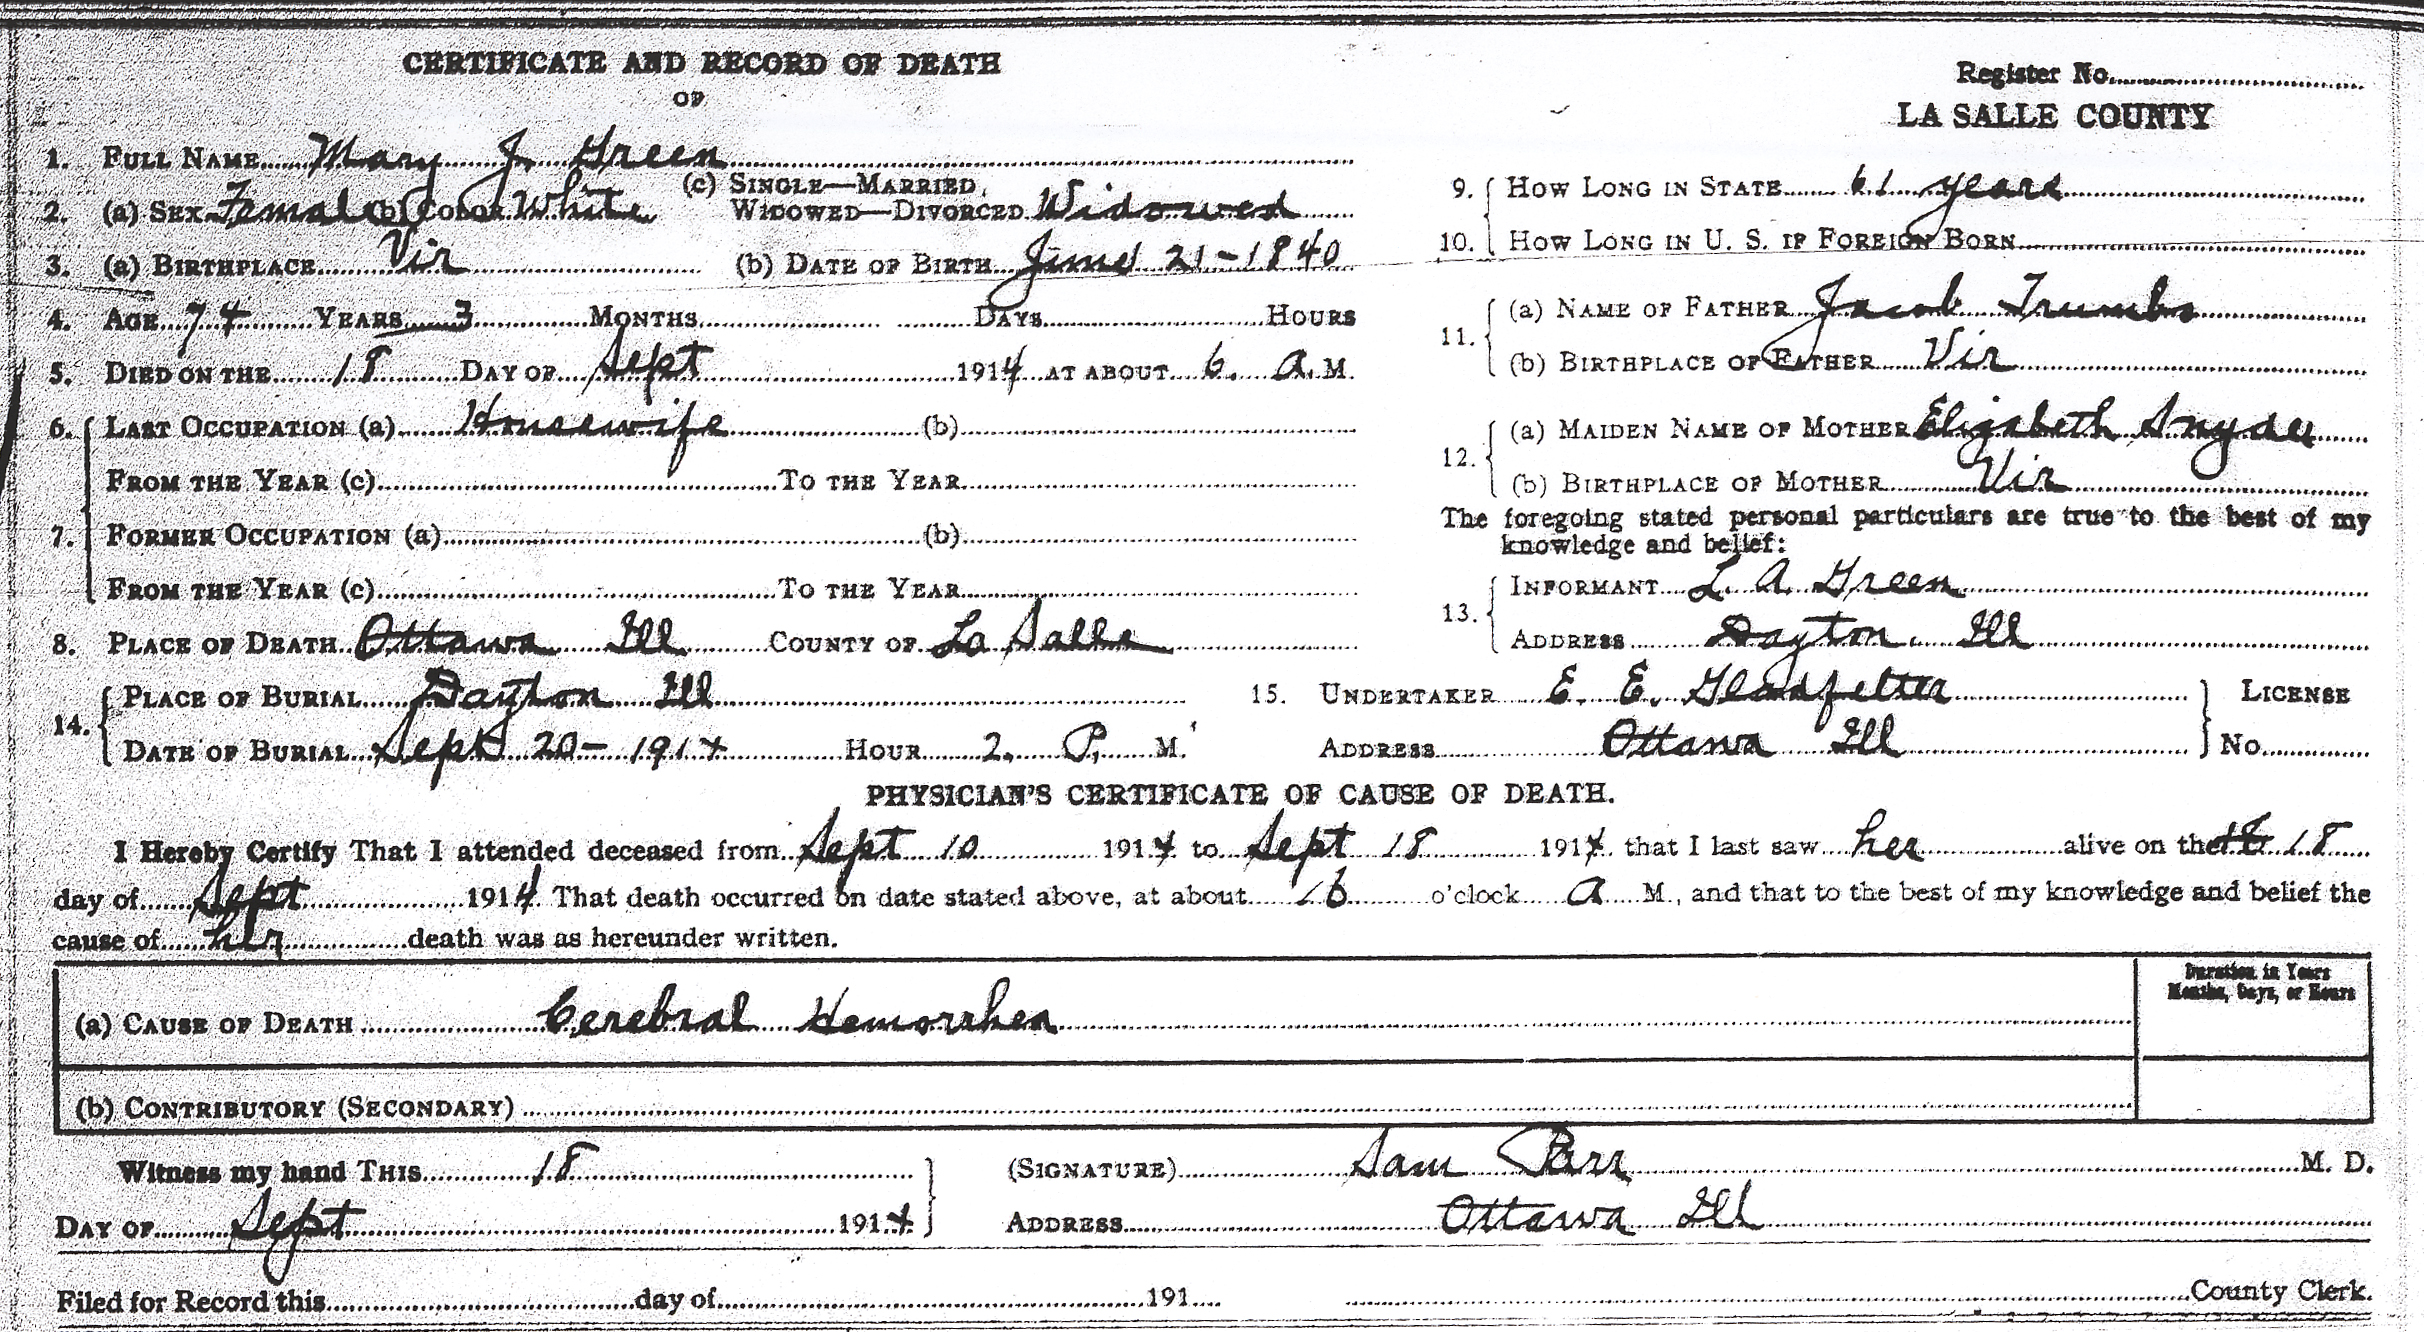 CERTIFICATE AND RECORD OF DEATH
OF
Register No.
LA SALLE COUNTY
1. FULL NAME Mary J. Green
2. (a) SEX Female (b) COLOR White (c) SINGLE—MARRIED, WIDOWED—DIVORCED Widowed
3. (a) BIRTHPLACE Vir (b) DATE OF BIRTH June 21-1840
4. AGE 74 YEARS 3 MONTHS DAYS HOURS
5. DIED ON THE 18 DAY OF Sept 1914 AT ABOUT 6. A. M.
6. LAST OCCUPATION (a) Housewife (b)
FROM THE YEAR (c) TO THE YEAR
7. FORMER OCCUPATION (a) (b)
FROM THE YEAR (c) TO THE YEAR
8. PLACE OF DEATH Ottawa Ill COUNTY OF La Salle
9. HOW LONG IN STATE 61 years
10. HOW LONG IN U. S. IF FOREIGN BORN
11. (a) NAME OF FATHER Jacob Trumbo
(b) BIRTHPLACE OF FATHER Vir
12. (a) MAIDEN NAME OF MOTHER Elizabeth Snyder
(b) BIRTHPLACE OF MOTHER Vir
The foregoing stated personal particulars are true to the best of my
knowledge and belief:
13. INFORMANT L. A. Green
ADDRESS Dayton Ill
14. PLACE OF BURIAL Dayton Ill
DATE OF BURIAL Sept 20-1914 HOUR 2. P. M.
15. UNDERTAKER E. E. Gladfelter LICENSE
ADDRESS Ottawa Ill No.
PHYSICIAN'S CERTIFICATE OF CAUSE OF DEATH.
I Hereby Certify That I attended deceased from Sept 10 1914 to Sept 18 1914 that I last saw her alive on the 18
day of Sept 1914 That death occurred on date stated above, at about 6 o'clock A M., and that to the best of my knowledge and belief the
cause of her death was as hereunder written.
Duration in Years
Months, Days, or Hours
(a) CAUSE OF DEATH Cerebral Hemorrhea
(b) CONTRIBUTORY (SECONDARY)
Witness my hand THIS 18
DAY OF Sept 1914
(SIGNATURE) Sam Parr M. D.
ADDRESS Ottawa Ill
Filed for Record this day of 191 County Clerk.